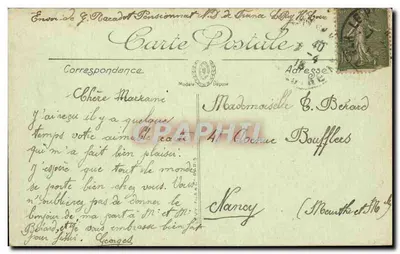 Envoi de G. Racadot Pensionnat N.D. de France Le Puy H. Loire
Carte Postale
Correspondance
Adresse
Chère Marraine
J'ai reçu il y a quelque
temps votre aimable carte
qui m'a fait bien plaisir.
J'espère que tout le monde
se porte bien chez vous. Vous
n'oublierez pas de donner le
bonjour de ma part à Mr et Me
Bérard, et je vous embrasse bien fort
Georges
Mademoiselle Bérard
41 Avenue Boufflers
Nancy
(Meurthe et M
CARTES POSTALES